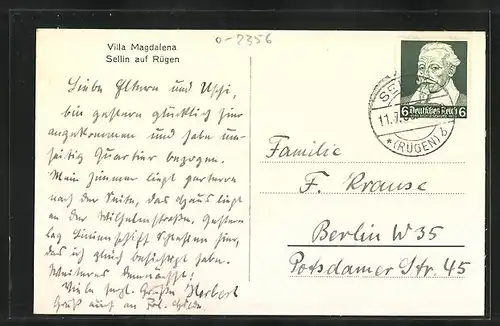 o-2356
Villa Magdalena
Sellin auf Rügen
Liebe Eltern und Uschi,
bin gestern glücklich hier
angekommen und habe um-
seitig Quartier bezogen.
Mein Zimmer liegt parterre
nach der Seite, das Haus liegt
an der Wilhelmstraße. Gestern
lag Linienschiff Schlesien hier,
das ich gleich besichtigt habe.
Weiteres demnächst!
Viele herzl. Grüße Herbert
Gruß auch an Frl.
Deutsches Reich
6 6
SEL
11.7.3
* (RÜGEN) b
Familie
F. Krause
Berlin W 35
Potsdamer Str. 45